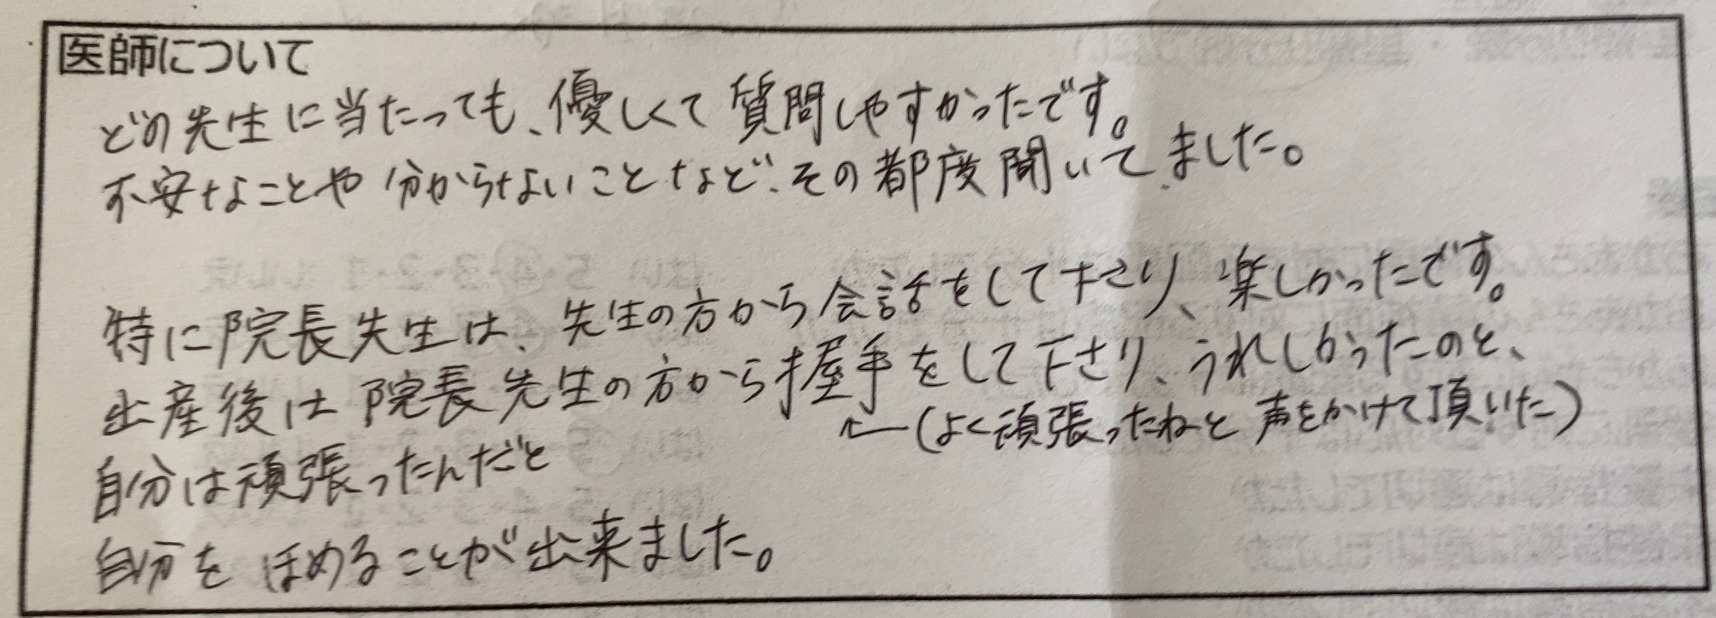 医師について
どの先生に当たっても、優しくて質問しやすかったです。
不安なことや分からないことなど、その都度聞いてました。
特に院長先生は、先生の方から会話をして下さり、楽しかったです。
出産後は院長先生の方から握手をして下さり、うれしかったのと、
←(よく頑張ったねと声をかけて頂いた)
自分は頑張ったんだと
自分をほめることが出来ました。